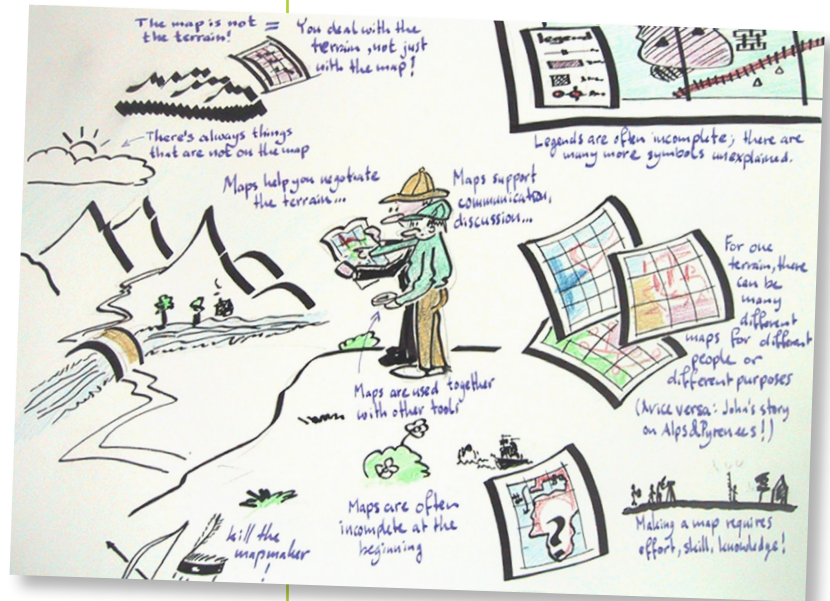 The map is not
the terrain!
=
You deal with the
terrain, not just
with the map!
legend
There's always things
that are not on the map
Legends are often incomplete; there are
many more symbols unexplained.
Maps help you negotiate
the terrain...
Maps support
communication,
discussion...
For one
terrain, there
can be
many
different
maps for different
people or
different purposes
(&vice versa: John's story
on Alps&Pyrenees!)
Maps are used together
with other tools
Maps are often
incomplete at the
beginning
?
Making a map requires
effort, skill, knowledge!
kill the
mapmaker
!